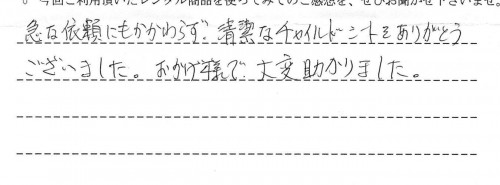 今回ご利用頂いたレンタル商品を使ってみてのご感想を、ぜひお聞かせ下さいませ。
急な依頼にもかかわらず、清潔なチャイルドシートをありがとう
ございました。おかげ様で、大変助かりました。